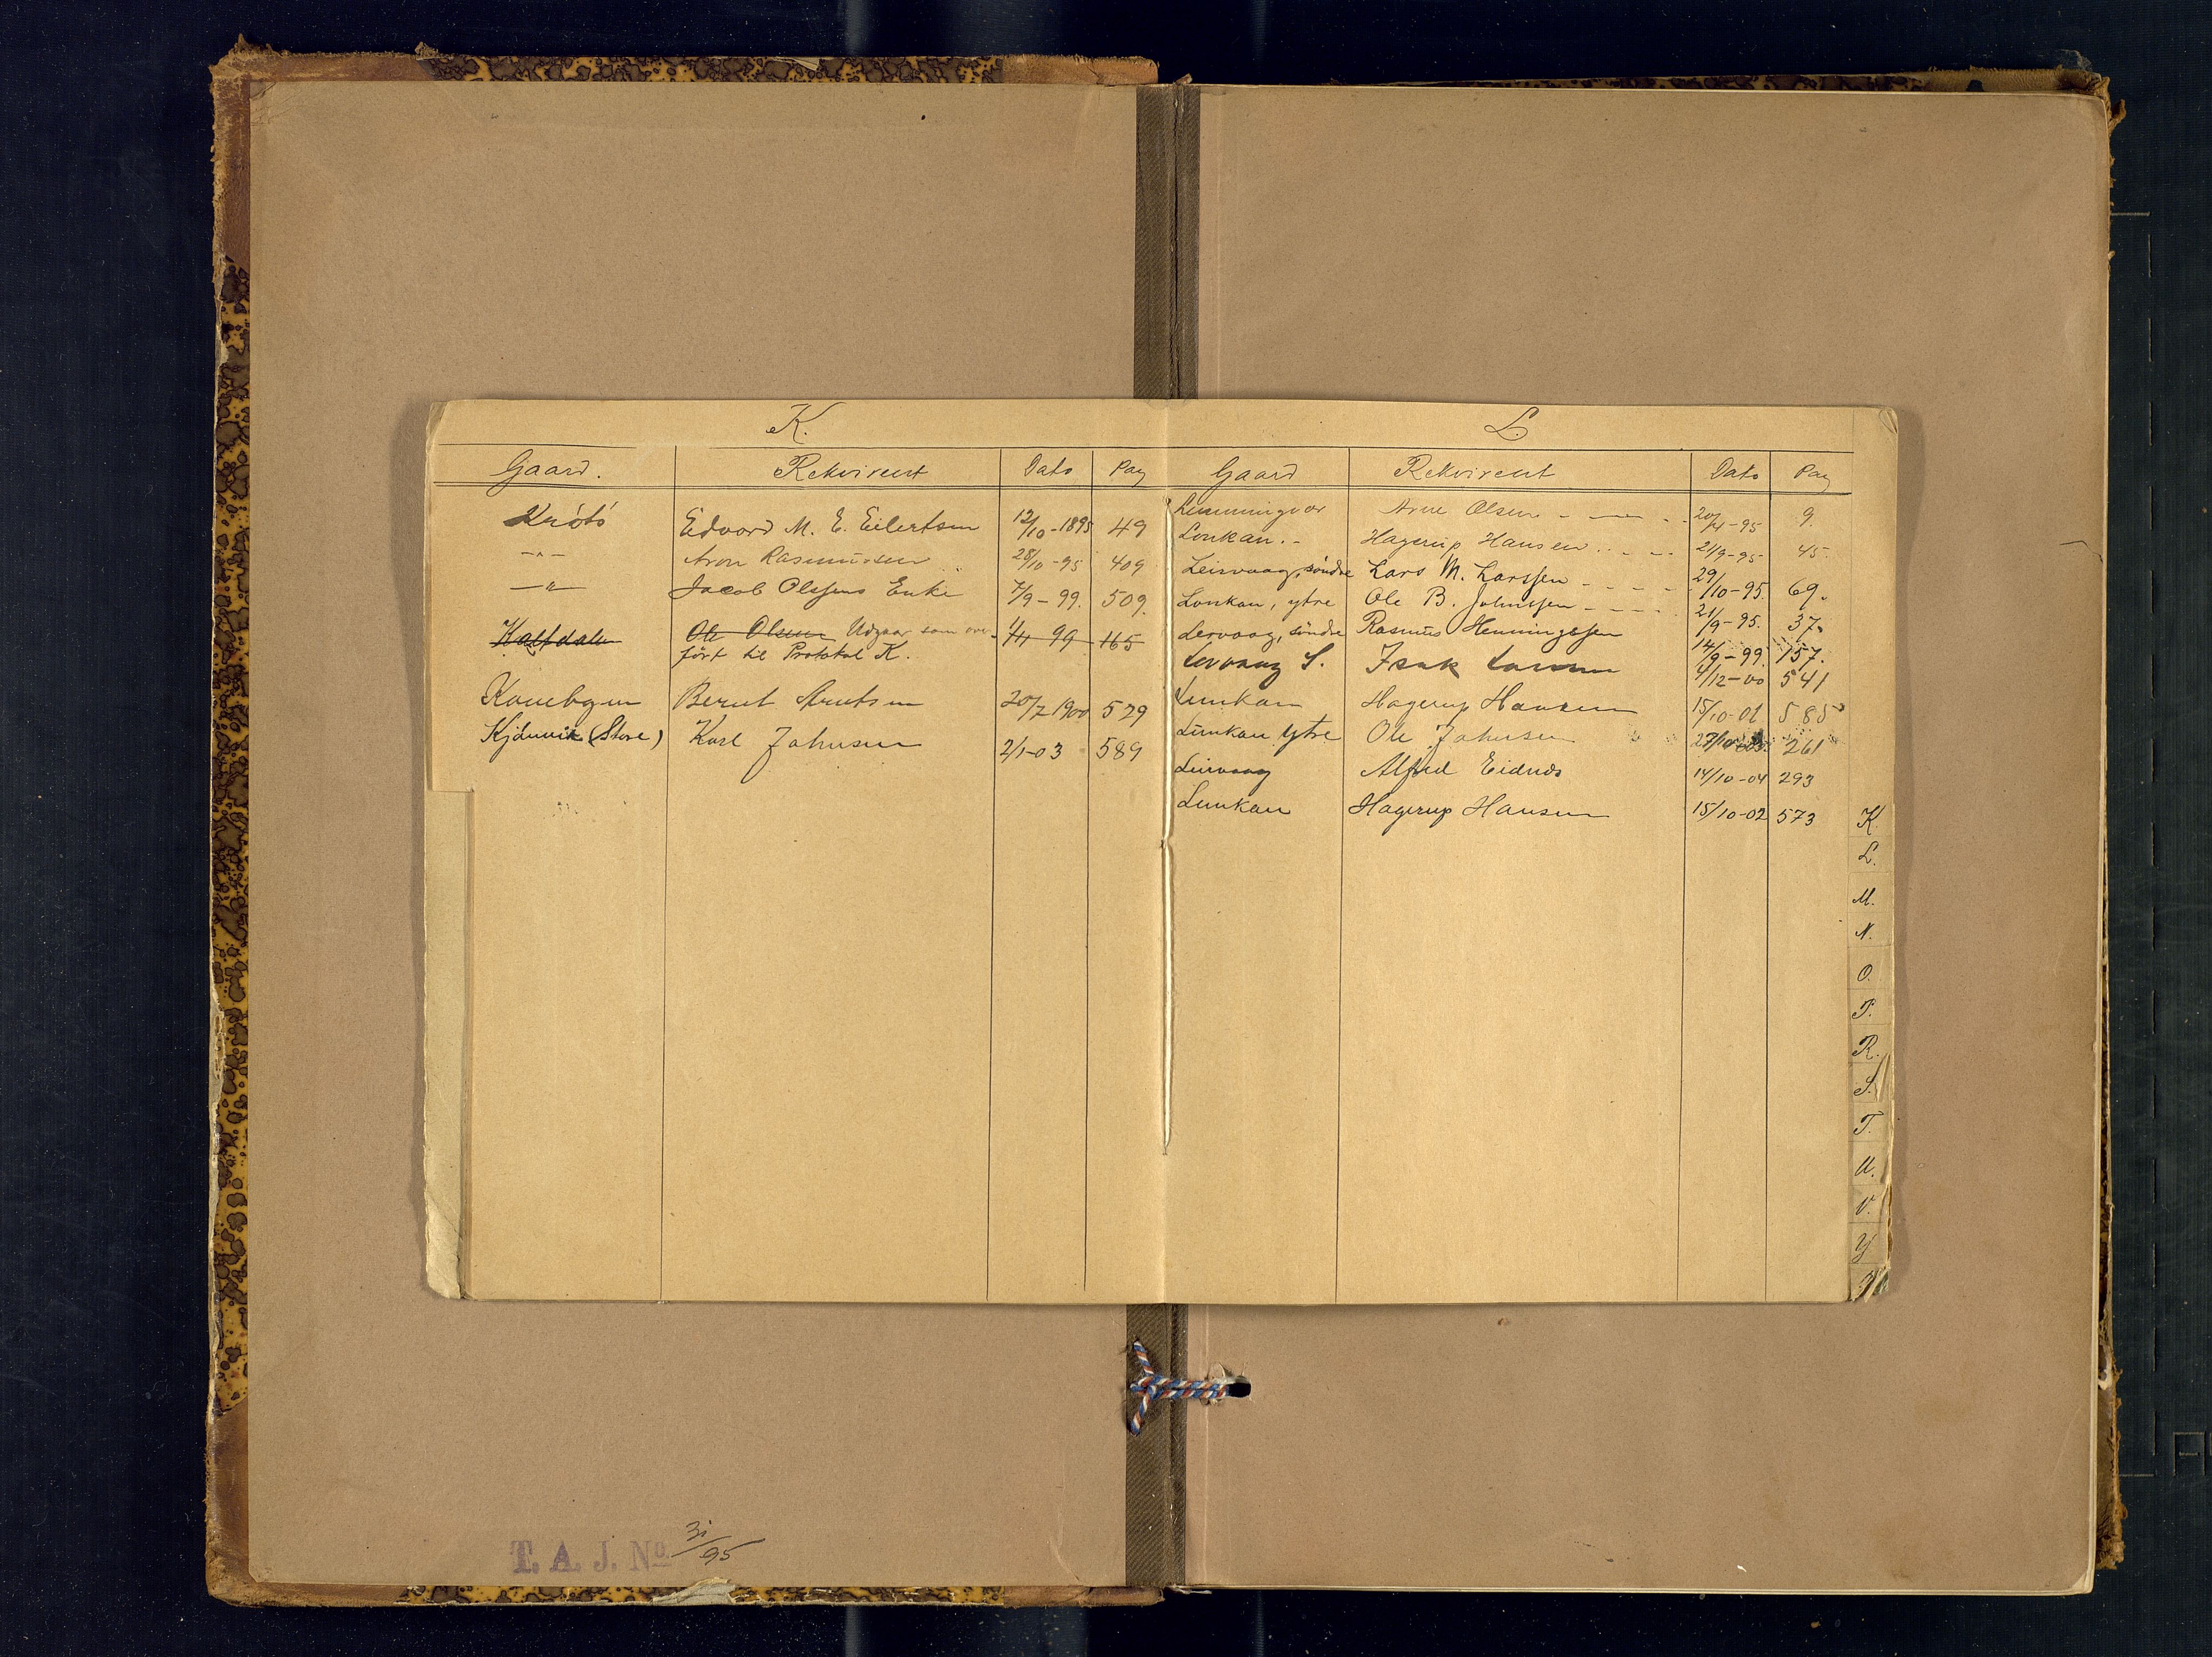 K.
Gaard. Rekvirent Dato Pag
Krötö Edvard M. E. Eilertsen 12/10-1895 49
-"- Aron Rasmussen 28/10-95 409
-"- Jacob Olssens Enke 7/9-99. 509.
Kalfdalen Ole Olsen Udgaar som over- 1/11 99 165
fört til Protokol K.
Bernt 20/7 1900 529
(Store) Karl Johnsen 2/1-03 589
L.
Gaard Rekvirent Dato Pag
Lemmingvær Arne Olsen 20/4-95 9.
Lonkan.- Hagerup Hansen 21/9-95 45.
Leirvaag, söndre Lars M. Larssen 29/10-95. 69.
Lonkan, ytre Ole B. Johnssen 21/9-95. 37.
Lervaag, söndre Rasmus Henningssen 14/9-99. 157.
Lervaag S. Isak Larsen 4/12-00 541
Lunkan Hagerup Hansen 15/10-02 585
Lunkan Ytre Ole Johnsen 261
Leirvaag Alfred 14/10-04 293
Lunkan Hagerup Hansen 15/10-02 573
K.
L.
M.
N.
O.
P.
R.
S.
T.
U.
V.
Y
T. A. J. No 31/95